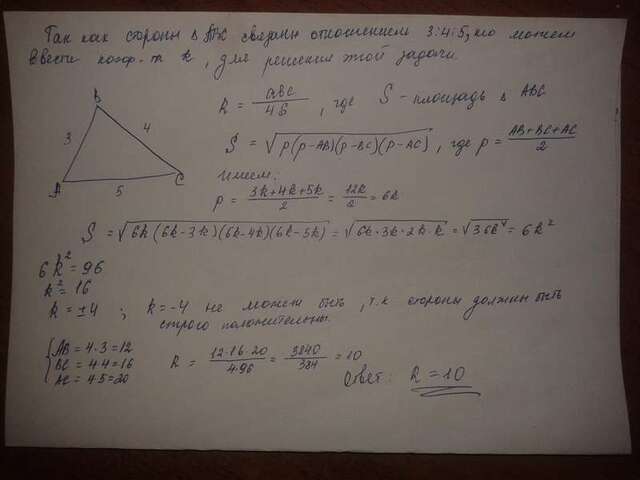 Так как стороны в ABC связаны отношением 3:4:5, то можем
ввести коэф-т k, для решения этой задачи.
B
3
4
A
5
C
R = abc/4S, где S - площадь в ABC
S = √(p(p-AB)(p-BC)(p-AC)), где p = (AB+BC+AC)/2
Имеем:
p = (3k+4k+5k)/2 = 12k/2 = 6k
S = √(6k(6k-3k)(6k-4k)(6k-5k)) = √(6k·3k·2k·k) = √(36k⁴) = 6k²
6k² = 96
k² = 16
k = ±4 ; k=-4 не может быть, т.к стороны должны быть
строго положительны.
{AB = 4·3=12
BC = 4·4=16
AC = 4·5=20
R = (12·16·20)/(4·96) = 3840/384 = 10
Ответ: R = 10